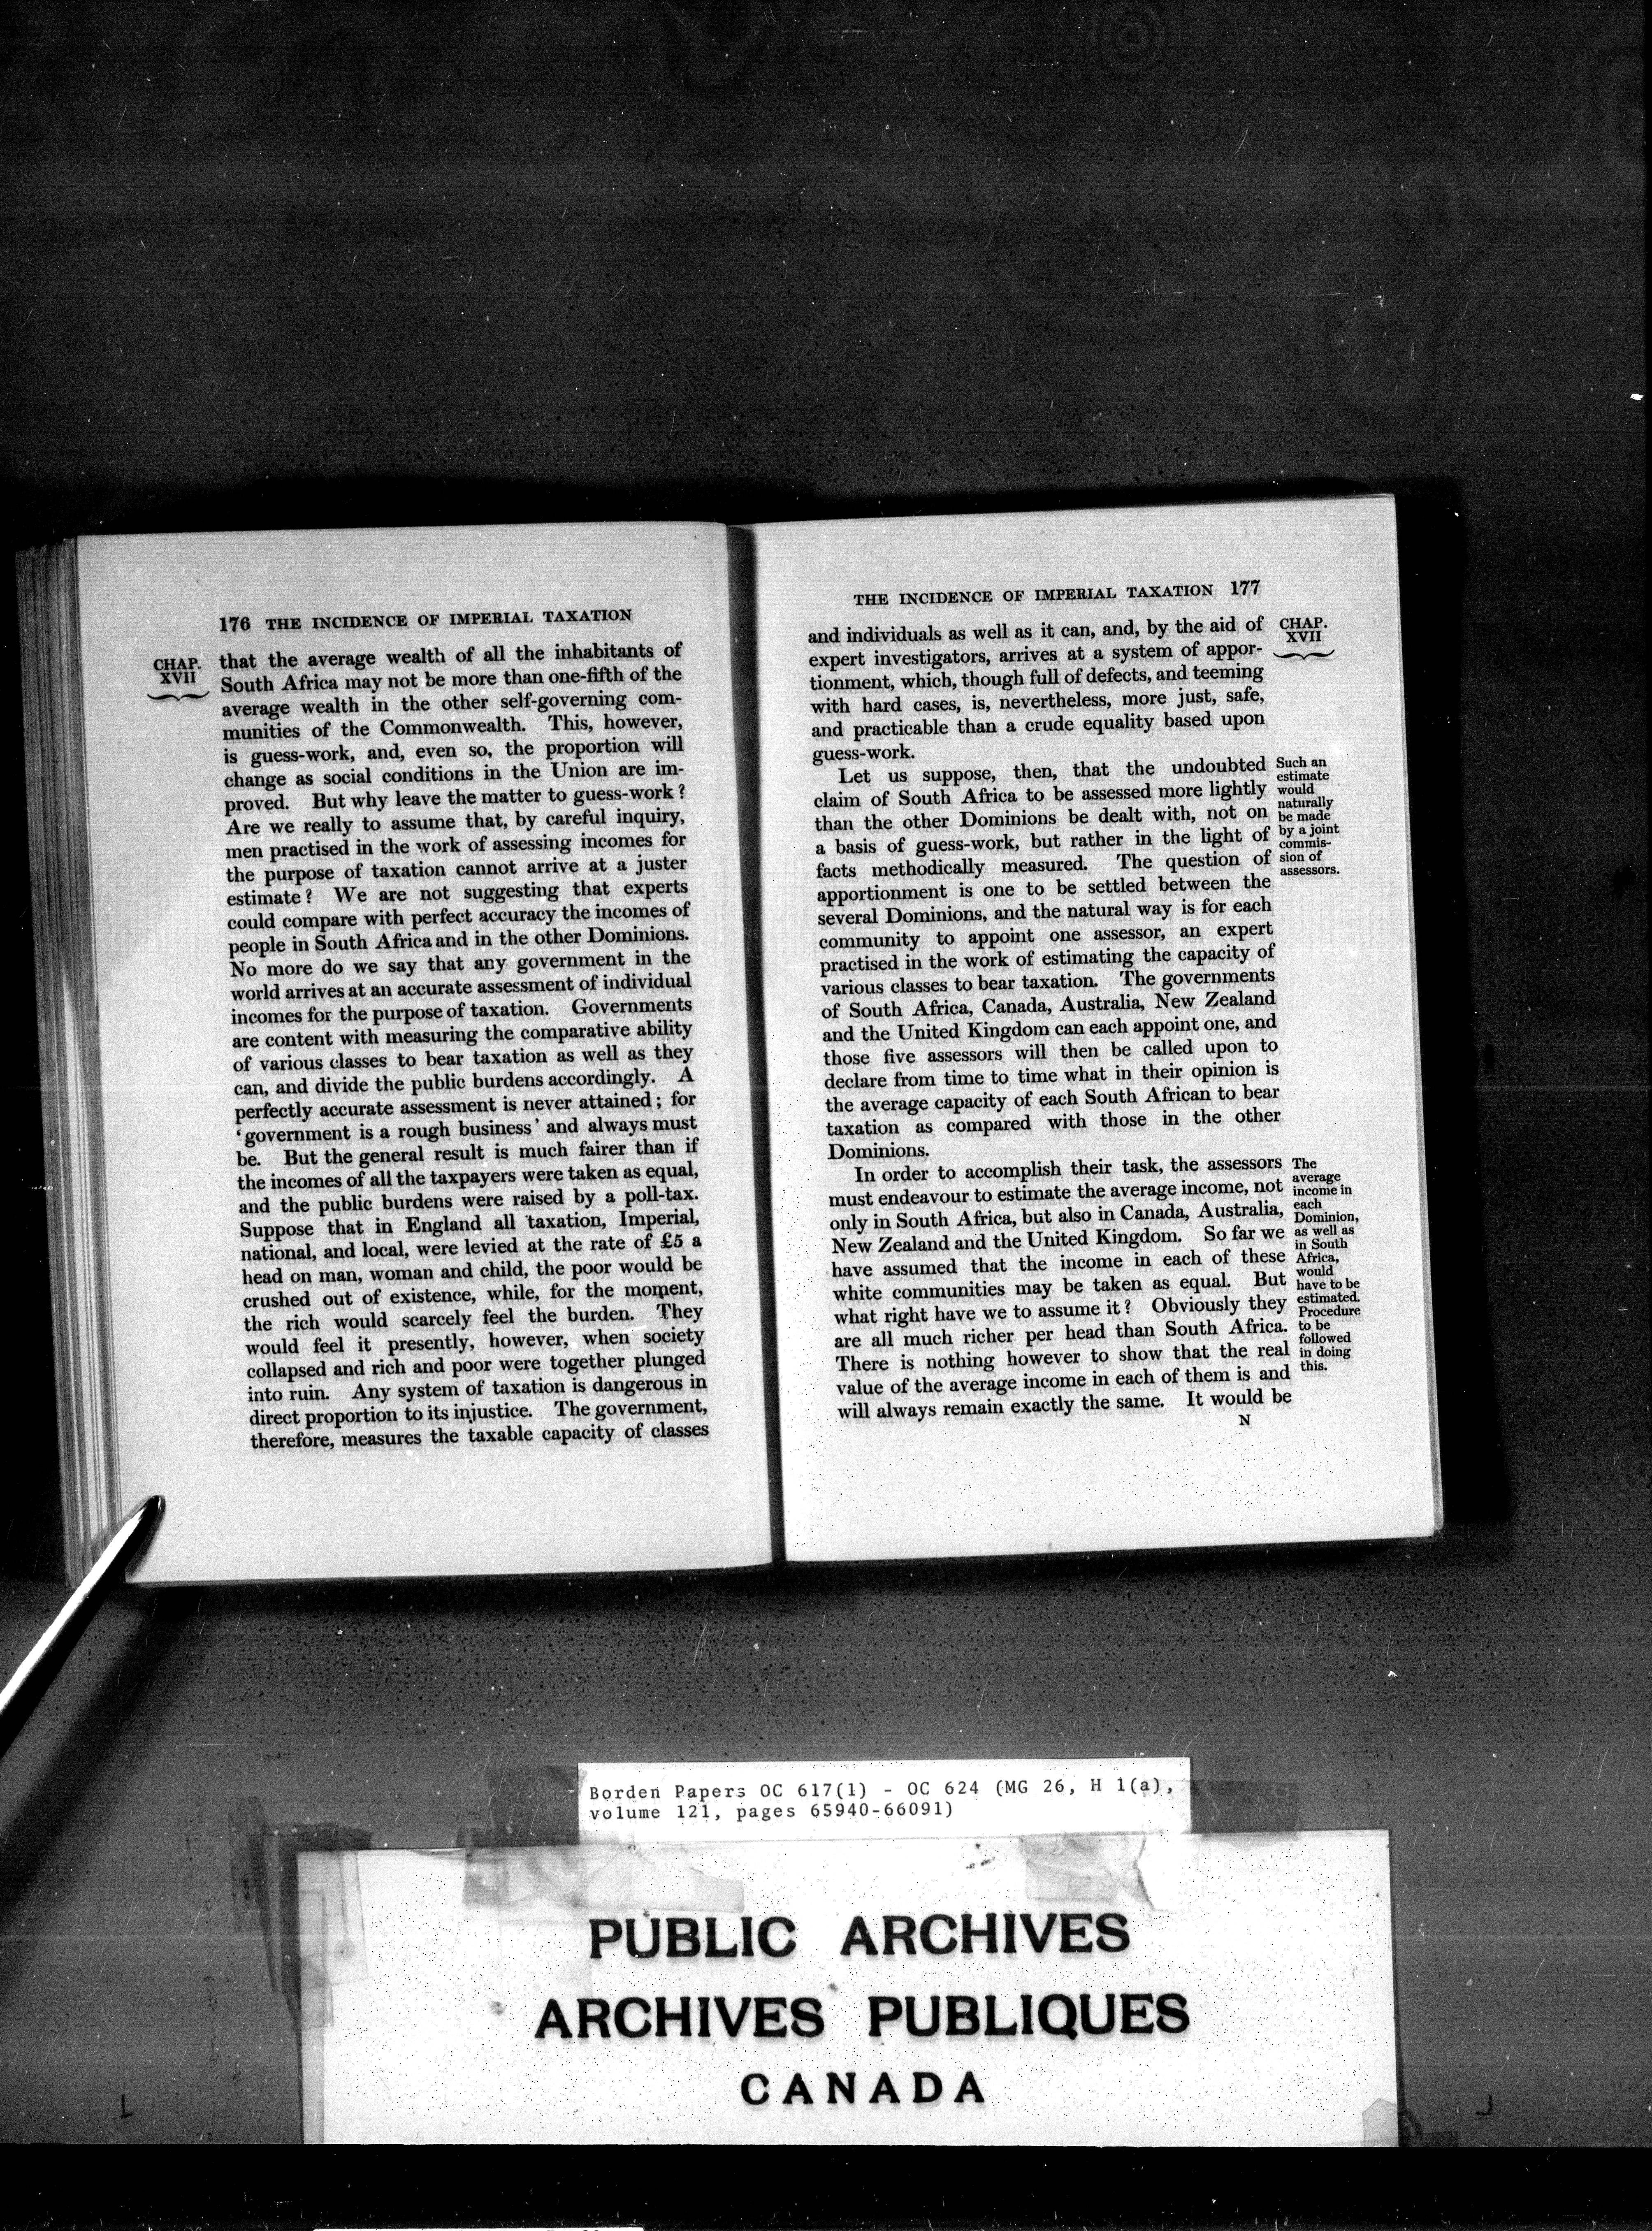 176 THE INCIDENCE OF IMPERIAL TAXATION
CHAP.
XVII
that the average wealth of all the inhabitants of
South Africa may not be more than one-fifth of the
average wealth in the other self-governing com-
munities of the Commonwealth. This, however,
is guess-work, and, even so, the proportion will
change as social conditions in the Union are im-
proved. But why leave the matter to guess-work?
Are we really to assume that, by careful inquiry,
men practised in the work of assessing incomes for
the purpose of taxation cannot arrive at a juster
estimate? We are not suggesting that experts
could compare with perfect accuracy the incomes of
people in South Africa and in the other Dominions.
No more do we say that any government in the
world arrives at an accurate assessment of individual
incomes for the purpose of taxation. Governments
are content with measuring the comparative ability
of various classes to bear taxation as well as they
can, and divide the public burdens accordingly. A
perfectly accurate assessment is never attained; for
‘government is a rough business’ and always must
be. But the general result is much fairer than if
the incomes of all the taxpayers were taken as equal,
and the public burdens were raised by a poll-tax.
Suppose that in England all taxation, Imperial,
national, and local, were levied at the rate of £5 a
head on man, woman and child, the poor would be
crushed out of existence, while, for the moment,
the rich would scarcely feel the burden. They
would feel it presently, however, when society
collapsed and rich and poor were together plunged
into ruin. Any system of taxation is dangerous in
direct proportion to its injustice. The government,
therefore, measures the taxable capacity of classes
THE INCIDENCE OF IMPERIAL TAXATION 177
CHAP.
XVII
and individuals as well as it can, and, by the aid of
expert investigators, arrives at a system of appor-
tionment, which, though full of defects, and teeming
with hard cases, is, nevertheless, more just, safe,
and practicable than a crude equality based upon
guess-work.
Let us suppose, then, that the undoubted
claim of South Africa to be assessed more lightly
than the other Dominions be dealt with, not on
a basis of guess-work, but rather in the light of
facts methodically measured. The question of
apportionment is one to be settled between the
several Dominions, and the natural way is for each
community to appoint one assessor, an expert
practised in the work of estimating the capacity of
various classes to bear taxation. The governments
of South Africa, Canada, Australia, New Zealand
and the United Kingdom can each appoint one, and
those five assessors will then be called upon to
declare from time to time what in their opinion is
the average capacity of each South African to bear
taxation as compared with those in the other
Dominions.
Such an
estimate
would
naturally
be made
by a joint
commis-
sion of
assessors.
In order to accomplish their task, the assessors
must endeavour to estimate the average income, not
only in South Africa, but also in Canada, Australia,
New Zealand and the United Kingdom. So far we
have assumed that the income in each of these
white communities may be taken as equal. But
what right have we to assume it? Obviously they
are all much richer per head than South Africa.
There is nothing however to show that the real
value of the average income in each of them is and
will always remain exactly the same. It would be
The
average
income in
each
Dominion,
as well as
in South
Africa,
would
have to be
estimated.
Procedure
to be
followed
in doing
this.
N
Borden Papers OC 617(1) - OC 624 (MG 26, H 1(a),
volume 121, pages 65940-66091)
PUBLIC ARCHIVES
ARCHIVES PUBLIQUES
CANADA